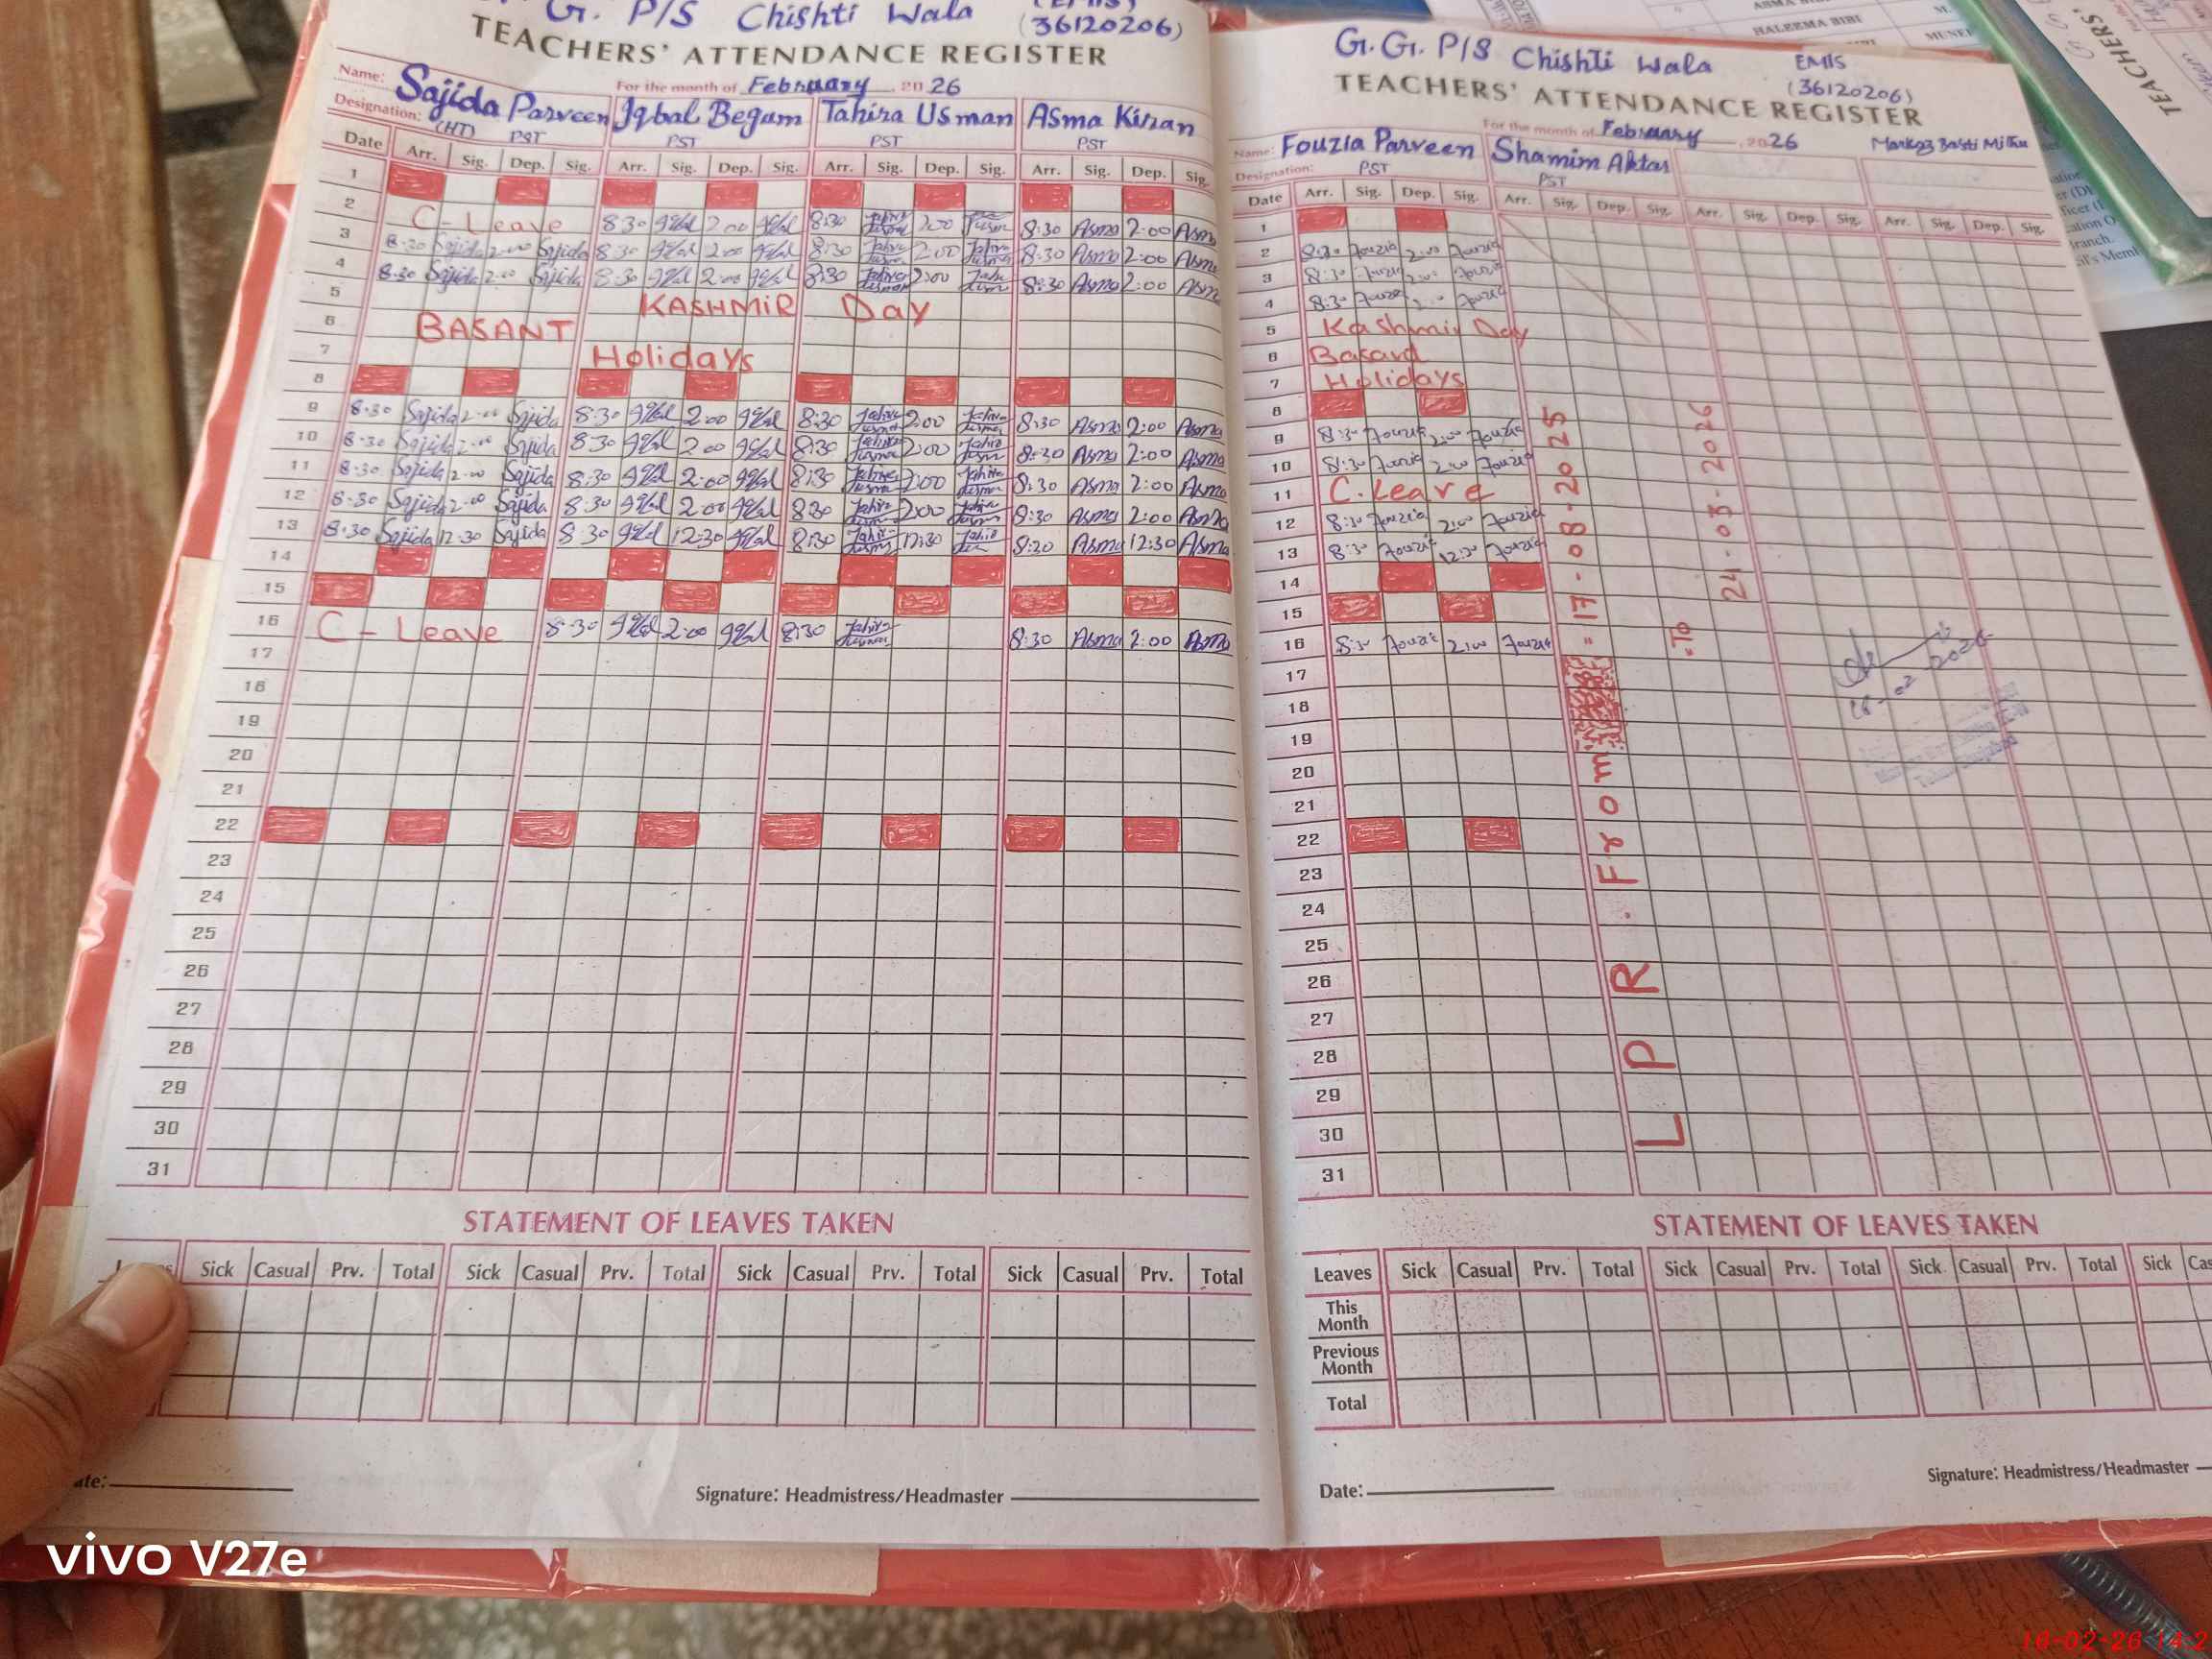 G. P/S Chishti Wala (36120206)
TEACHERS' ATTENDANCE REGISTER
For the month of February 2026
Name: Sajida Parveen Iqbal Begum Tahira Usman Asma Kiran
Designation: (HT) PST PST PST PST
Date Arr. Sig. Dep. Sig. Arr. Sig. Dep. Sig. Arr. Sig. Dep. Sig. Arr. Sig. Dep. Sig.
1
2 C-Leave 8:30 2:00 8:30 2:00 8:30 Asma 2:00 Asma
3 8:30 Sajida 2:00 Sajida 8:30 2:00 8:30 2:00 8:30 Asma 2:00 Asma
4 8:30 Sajida 2:00 Sajida 8:30 2:00 8:30 2:00 8:30 Asma 2:00 Asma
5 KASHMIR Day
6 BASANT
7 Holidays
8
9 8:30 Sajida 2:00 Sajida 8:30 2:00 8:30 2:00 8:30 Asma 2:00 Asma
10 8:30 Sajida 2:00 Sajida 8:30 2:00 8:30 2:00 8:30 Asma 2:00 Asma
11 8:30 Sajida 2:00 Sajida 8:30 2:00 8:30 2:00 8:30 Asma 2:00 Asma
12 8:30 Sajida 2:00 Sajida 8:30 2:00 830 2:00 8:30 Asma 2:00 Asma
13 8:30 Sajida 12:30 Sajida 8:30 12:30 8:30 12:30 8:30 Asma 12:30 Asma
14
15
16 C-Leave 8:30 2:00 8:30 8:30 Asma 2:00 Asma
17
18
19
20
21
22
23
24
25
26
27
28
29
30
31
STATEMENT OF LEAVES TAKEN
Sick Casual Prv. Total Sick Casual Prv. Total Sick Casual Prv. Total Sick Casual Prv. Total
Signature: Headmistress/Headmaster
G. G. P/S Chishti Wala EMIS (36120206)
TEACHERS' ATTENDANCE REGISTER
For the month of February 2026
Name: Fouzia Parveen Shamim Aktar
Designation: PST PST
Date Arr. Sig. Dep. Sig. Arr. Sig. Dep. Sig. Arr. Sig. Dep. Sig. Arr. Sig. Dep. Sig.
1
2 8:30 Fouzia 2:00 Fouzia
3 8:30 Fouzia 2:00 Fouzia
4 8:30 Fouzia Fouzia
5 Kashmir Day
6
7 Holidays
8
9 8:30 Fouzia 2:00 Fouzia
10 8:30 Fouzia 2:00 Fouzia
11 C.Leave
12 8:30 Fouzia 2:00 Fouzia
13 8:30 Fouzia 12:30 Fouzia
14
15
16 8:30 Fouzia 2:00 Fouzia
17
18
19
20
21
22
23
24
25
26
27
28
29
30
31
LPR. From = 17-08-2025
=To 24-03-2026
STATEMENT OF LEAVES TAKEN
Leaves Sick Casual Prv. Total Sick Casual Prv. Total Sick Casual Prv. Total Sick
This Month
Previous Month
Total
Date:
Signature: Headmistress/Headmaster
TEACHERS'
HALEEMA BIBI
vivo V27e